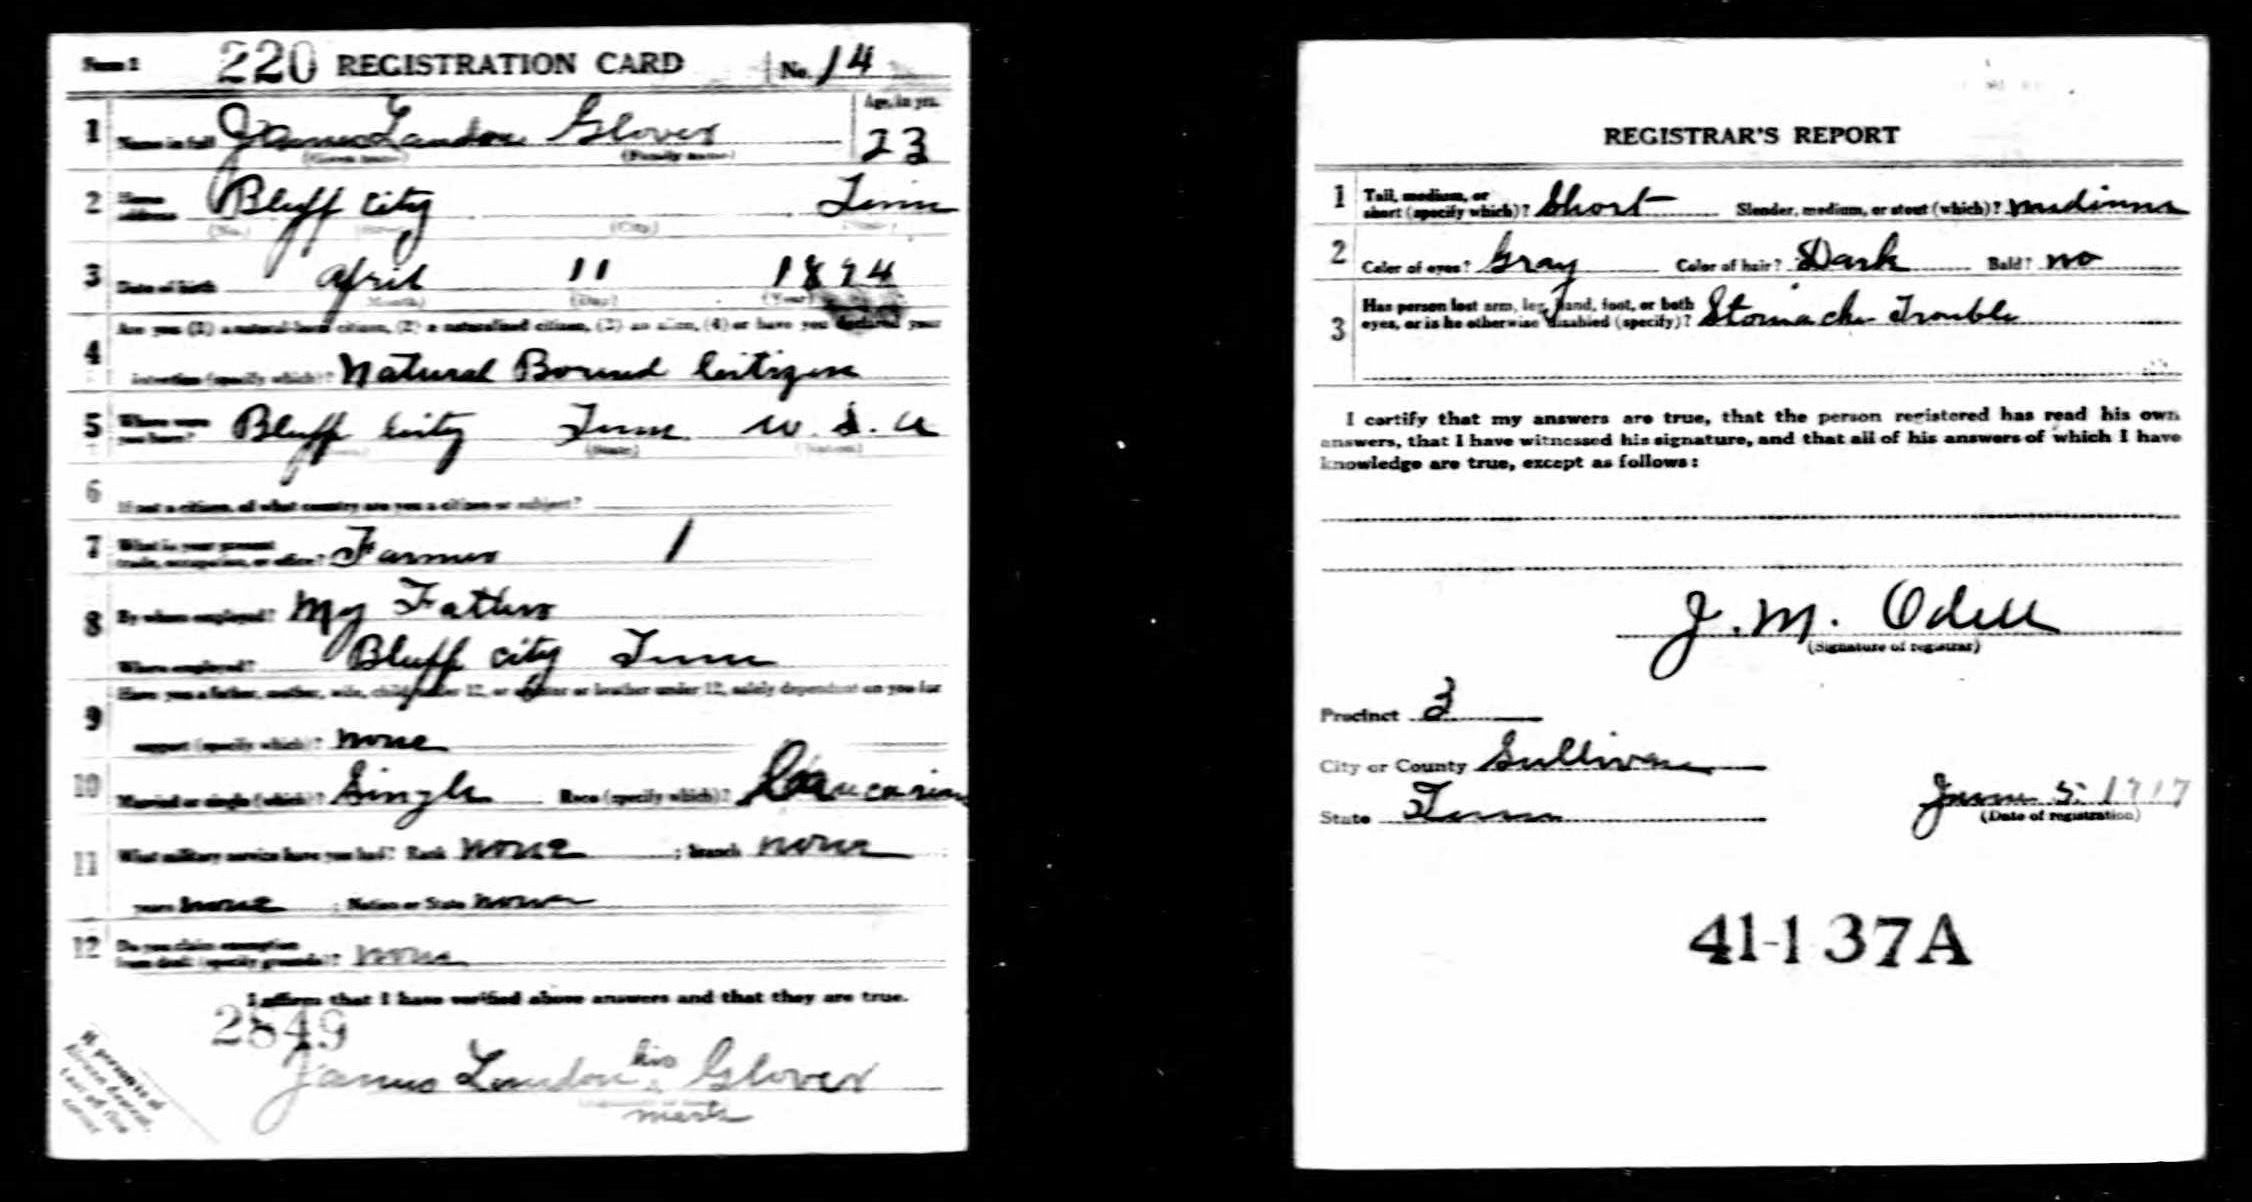 Form 1 220 REGISTRATION CARD No. 14
1 Name in full James Landon Glover Age, in yrs. 23
(Given name) (Family name)
2 Home address Bluff City Tenn
(No.) (Street) (City) (State)
3 Date of birth April 11 1894
(Month) (Day) (Year)
Are you (1) a natural-born citizen, (2) a naturalized citizen, (3) an alien, (4) or have you declared your
4 intention (specify which)? Natural Borned Citizen
5 Where were you born? Bluff City Tenn U. S. A
(State) (Nation)
6 If not a citizen, of what country are you a citizen or subject?
7 What is your present trade, occupation, or office? Farmer 1
8 By whom employed? My Father
Where employed? Bluff City Tenn
9 Have you a father, mother, wife, child under 12, or a sister or brother under 12, solely dependent on you for
support (specify which)? none
10 Married or single (which)? Single Race (specify which)? Caucasian
11 What military service have you had? Rank none ; branch none
years none ; Nation or State none
12 Do you claim exemption
from draft (specify grounds)? none
I affirm that I have verified above answers and that they are true.
2849
James Landon his Glover
mark
If person is of
African descent,
tear off this
corner
REGISTRAR'S REPORT
1 Tall, medium, or
short (specify which)? Short Slender, medium, or stout (which)? Medium
2 Color of eyes? Gray Color of hair? Dark Bald? no
3 Has person lost arm, leg, hand, foot, or both
eyes, or is he otherwise disabled (specify)? Stomach Trouble
I certify that my answers are true, that the person registered has read his own
answers, that I have witnessed his signature, and that all of his answers of which I have
knowledge are true, except as follows:
J. M. Odell
(Signature of registrar)
Precinct 3
City or County Sullivan
State Tenn June 5 1917
(Date of registration)
41-1 37A